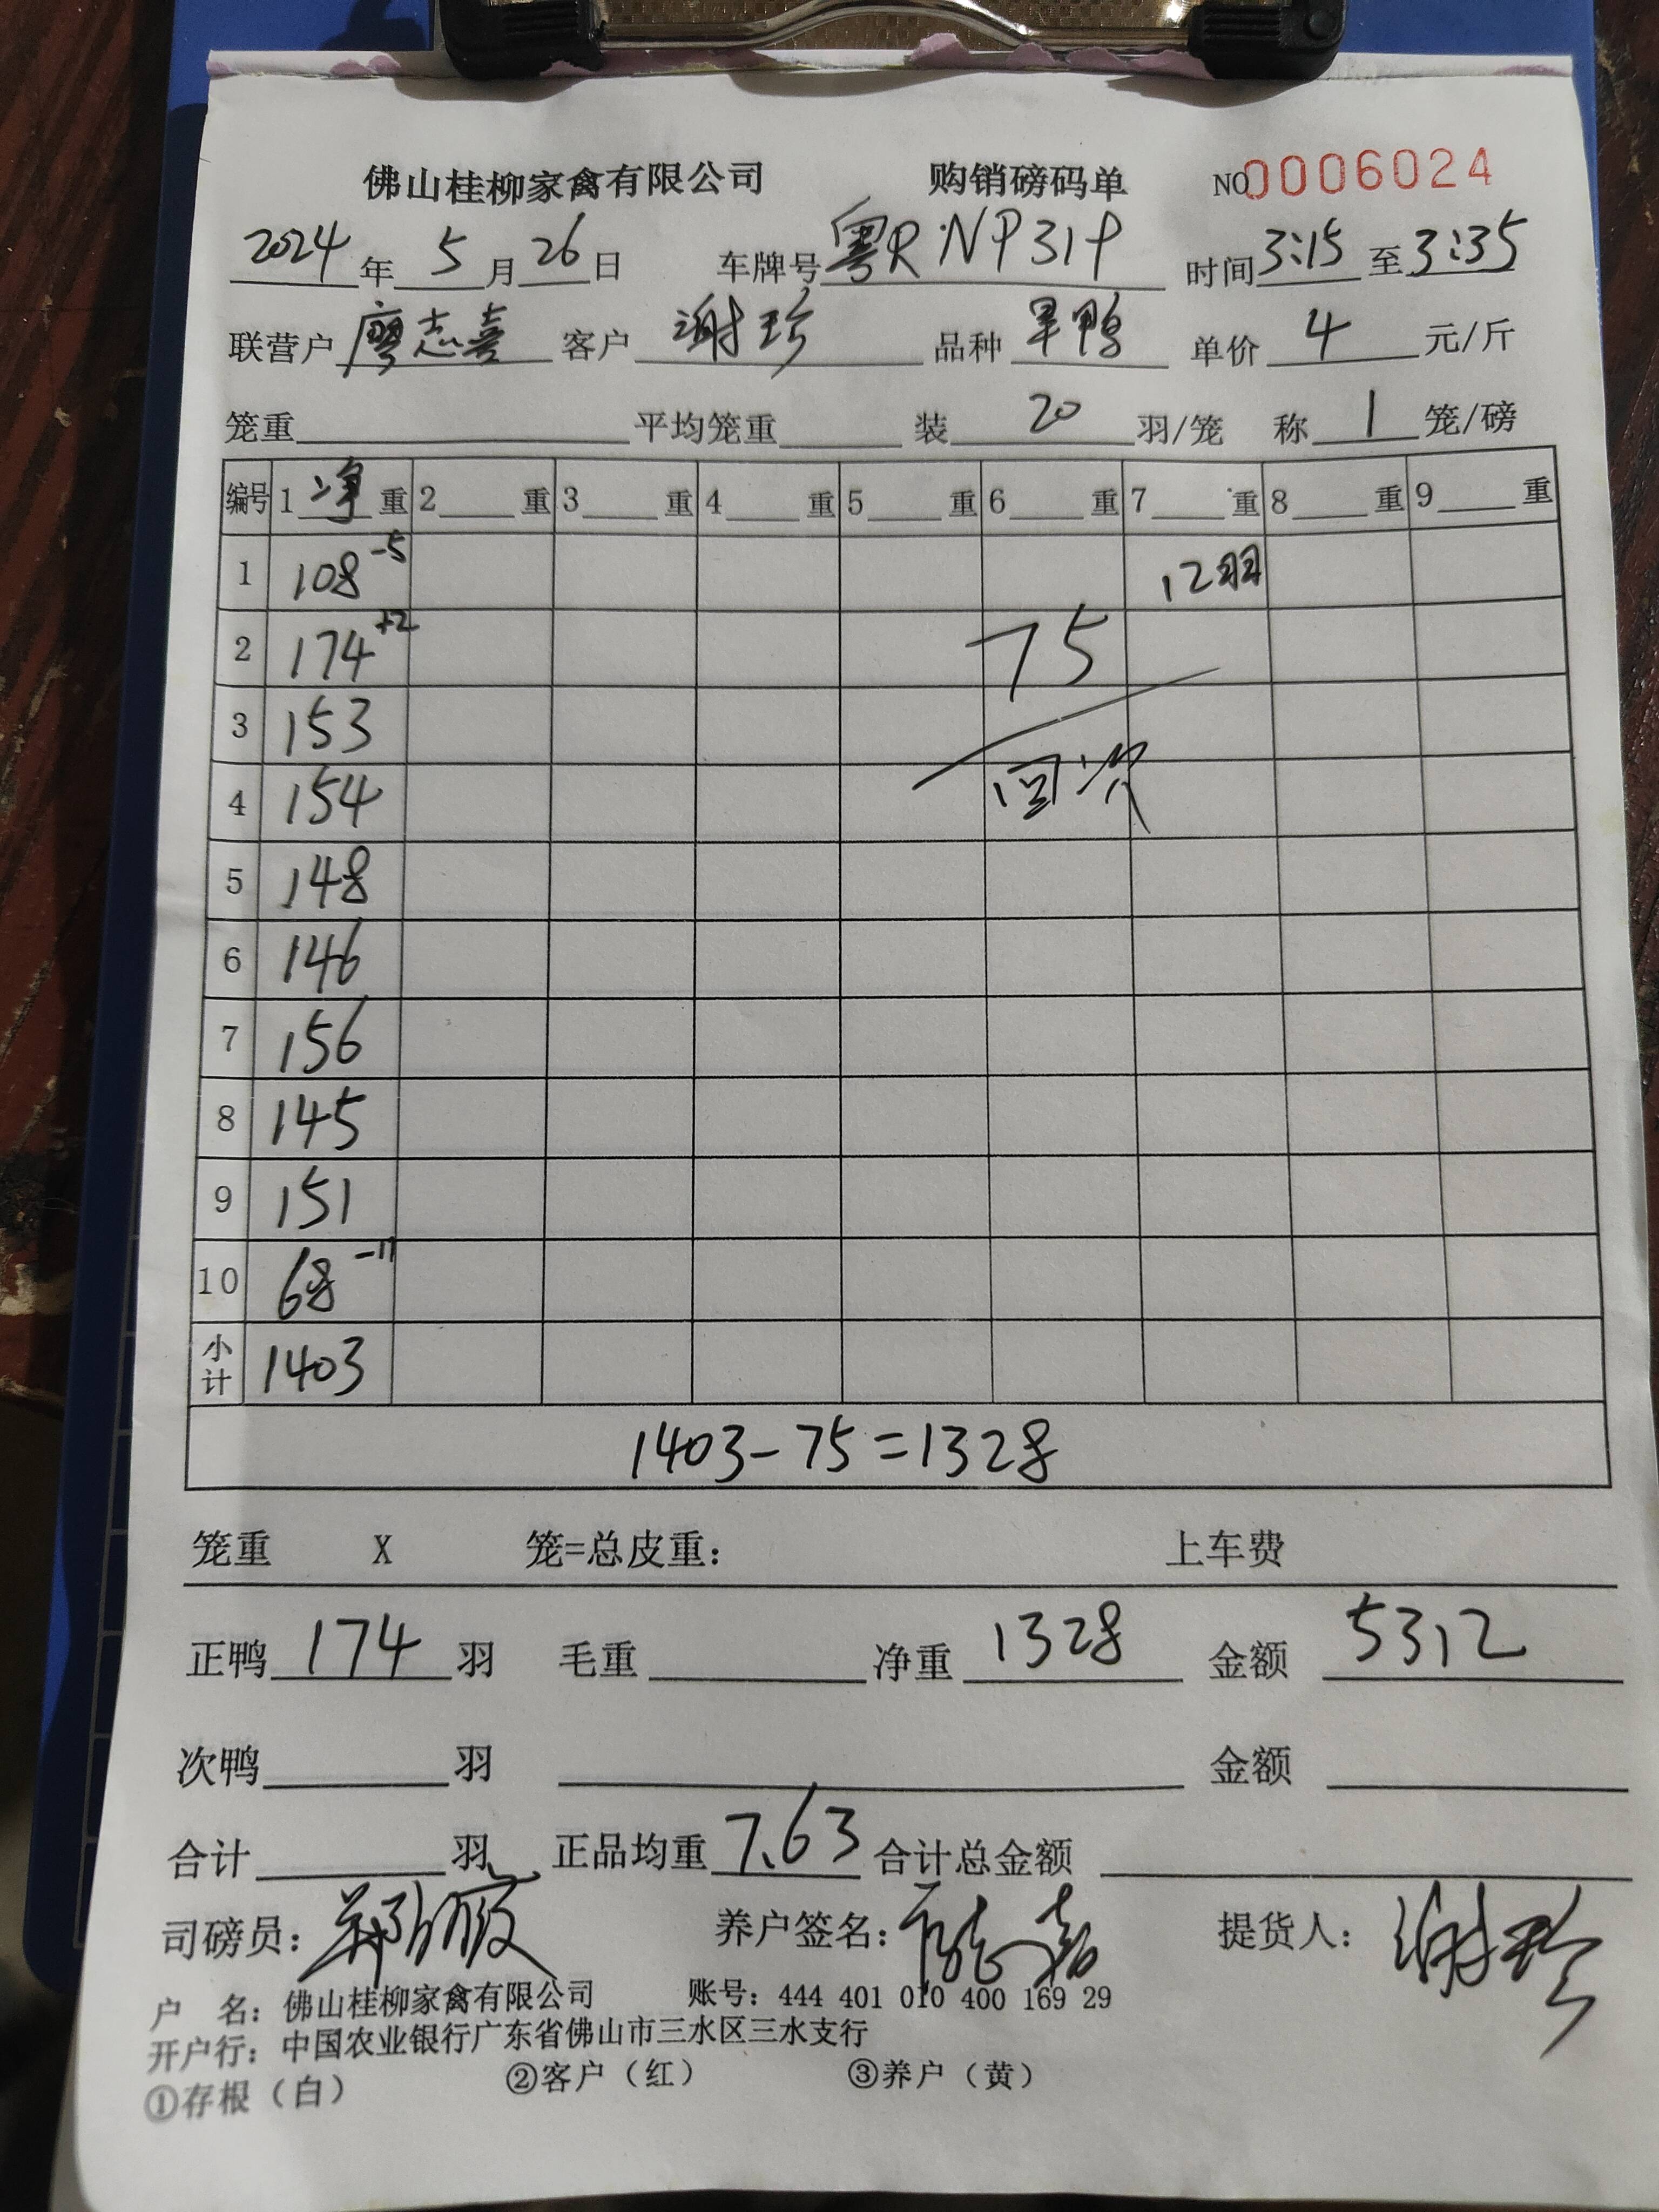 佛山桂柳家禽有限公司 购销磅码单 NO0006024
2024年5月26日 车牌号粤R·NP319 时间3:15至3:35
联营户 廖志喜 客户 谢珍 品种 旱鸭 单价 4 元/斤
笼重 平均笼重 装 20 羽/笼 称 1 笼/磅
编号 1净重 2重 3重 4重 5重 6重 7重 8重 9重
1 108 -5 12羽
2 174 +2 75
3 153
4 154 回
5 148
6 146
7 156
8 145
9 151
10 68 -11
小计 1403
1403-75=1328
笼重 X 笼=总皮重: 上车费
正鸭 174 羽 毛重 净重 1328 金额 5312
次鸭 羽 金额
合计 羽 正品均重 7.63 合计总金额
司磅员: 养户签名: 提货人: 谢珍
户 名: 佛山桂柳家禽有限公司 账号: 444 401 010 400 169 29
开户行: 中国农业银行广东省佛山市三水区三水支行
①存根(白) ②客户(红) ③养户(黄)